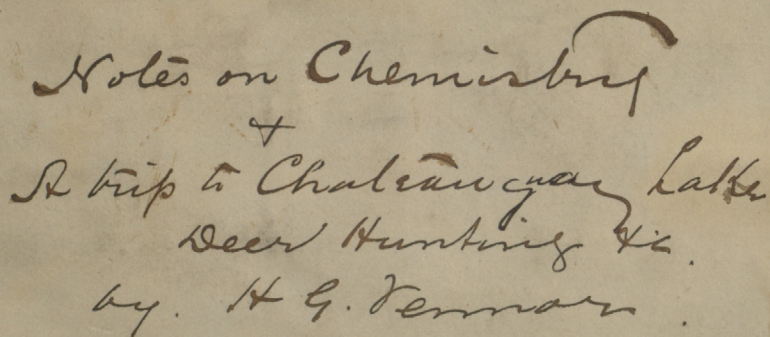 Notes on Chemistry
&
A trip to Chateauguay Lakes
Deer Hunting &c.
by. H G. Vennor.